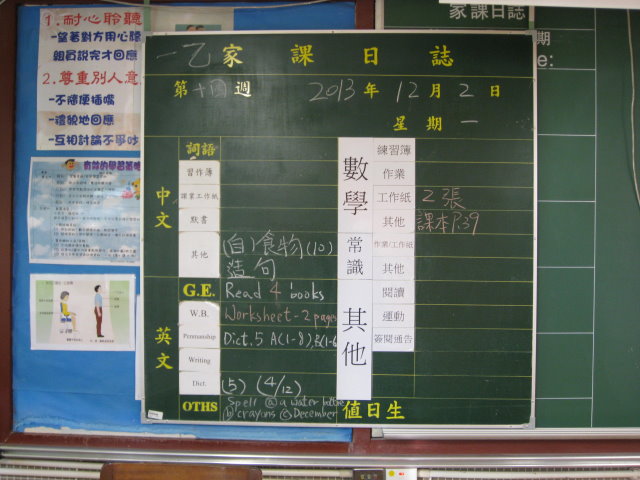 1.耐心聆聽
-望著對方用心聽
親員說完才回應
2.尊重別人意
-不隨便插嘴
-禮貌地回應
-互相討論不爭吵
一乙家課日誌
第十四週 2013年12月2日
星期一
中文
詞語
習作簿
課業工作紙
默書
其他 (自)食物(10)
造句
英文
G.E. Read 4 books
W.B. Worksheet-2 pages
Penmanship Dict.5 A(1-8),B(1-6
Writing
Dict. (5) (4/12)
OTHS Spell ⓐ a water bottle
ⓑ crayons ⓒ December
數學
練習簿
作業
工作紙 2張
其他 課本P.39
常識
作業/工作紙
其他
其他
閱讀
運動
簽閱通告
值日生
家課日誌
期
e: